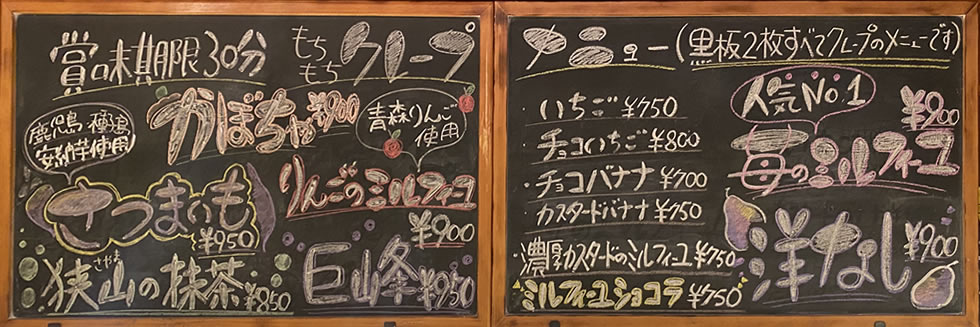 賞味期限30分
もちもちクレープ
かぼちゃ ¥900
鹿児島・種子島
安納芋使用
さつまいも
¥950
青森りんご
使用
りんごのミルフィーユ
¥900
さやま
狭山の抹茶 ¥850
巨峰 ¥950
メニュー(黒板2枚すべてクレープのメニューです)
・いちご ¥750
・チョコいちご ¥800
・チョコバナナ ¥700
・カスタードバナナ ¥750
・濃厚カスタードのミルフィーユ ¥750
ミルフィーユショコラ ¥750
人気No.1
苺のミルフィーユ
¥900
洋なし ¥900